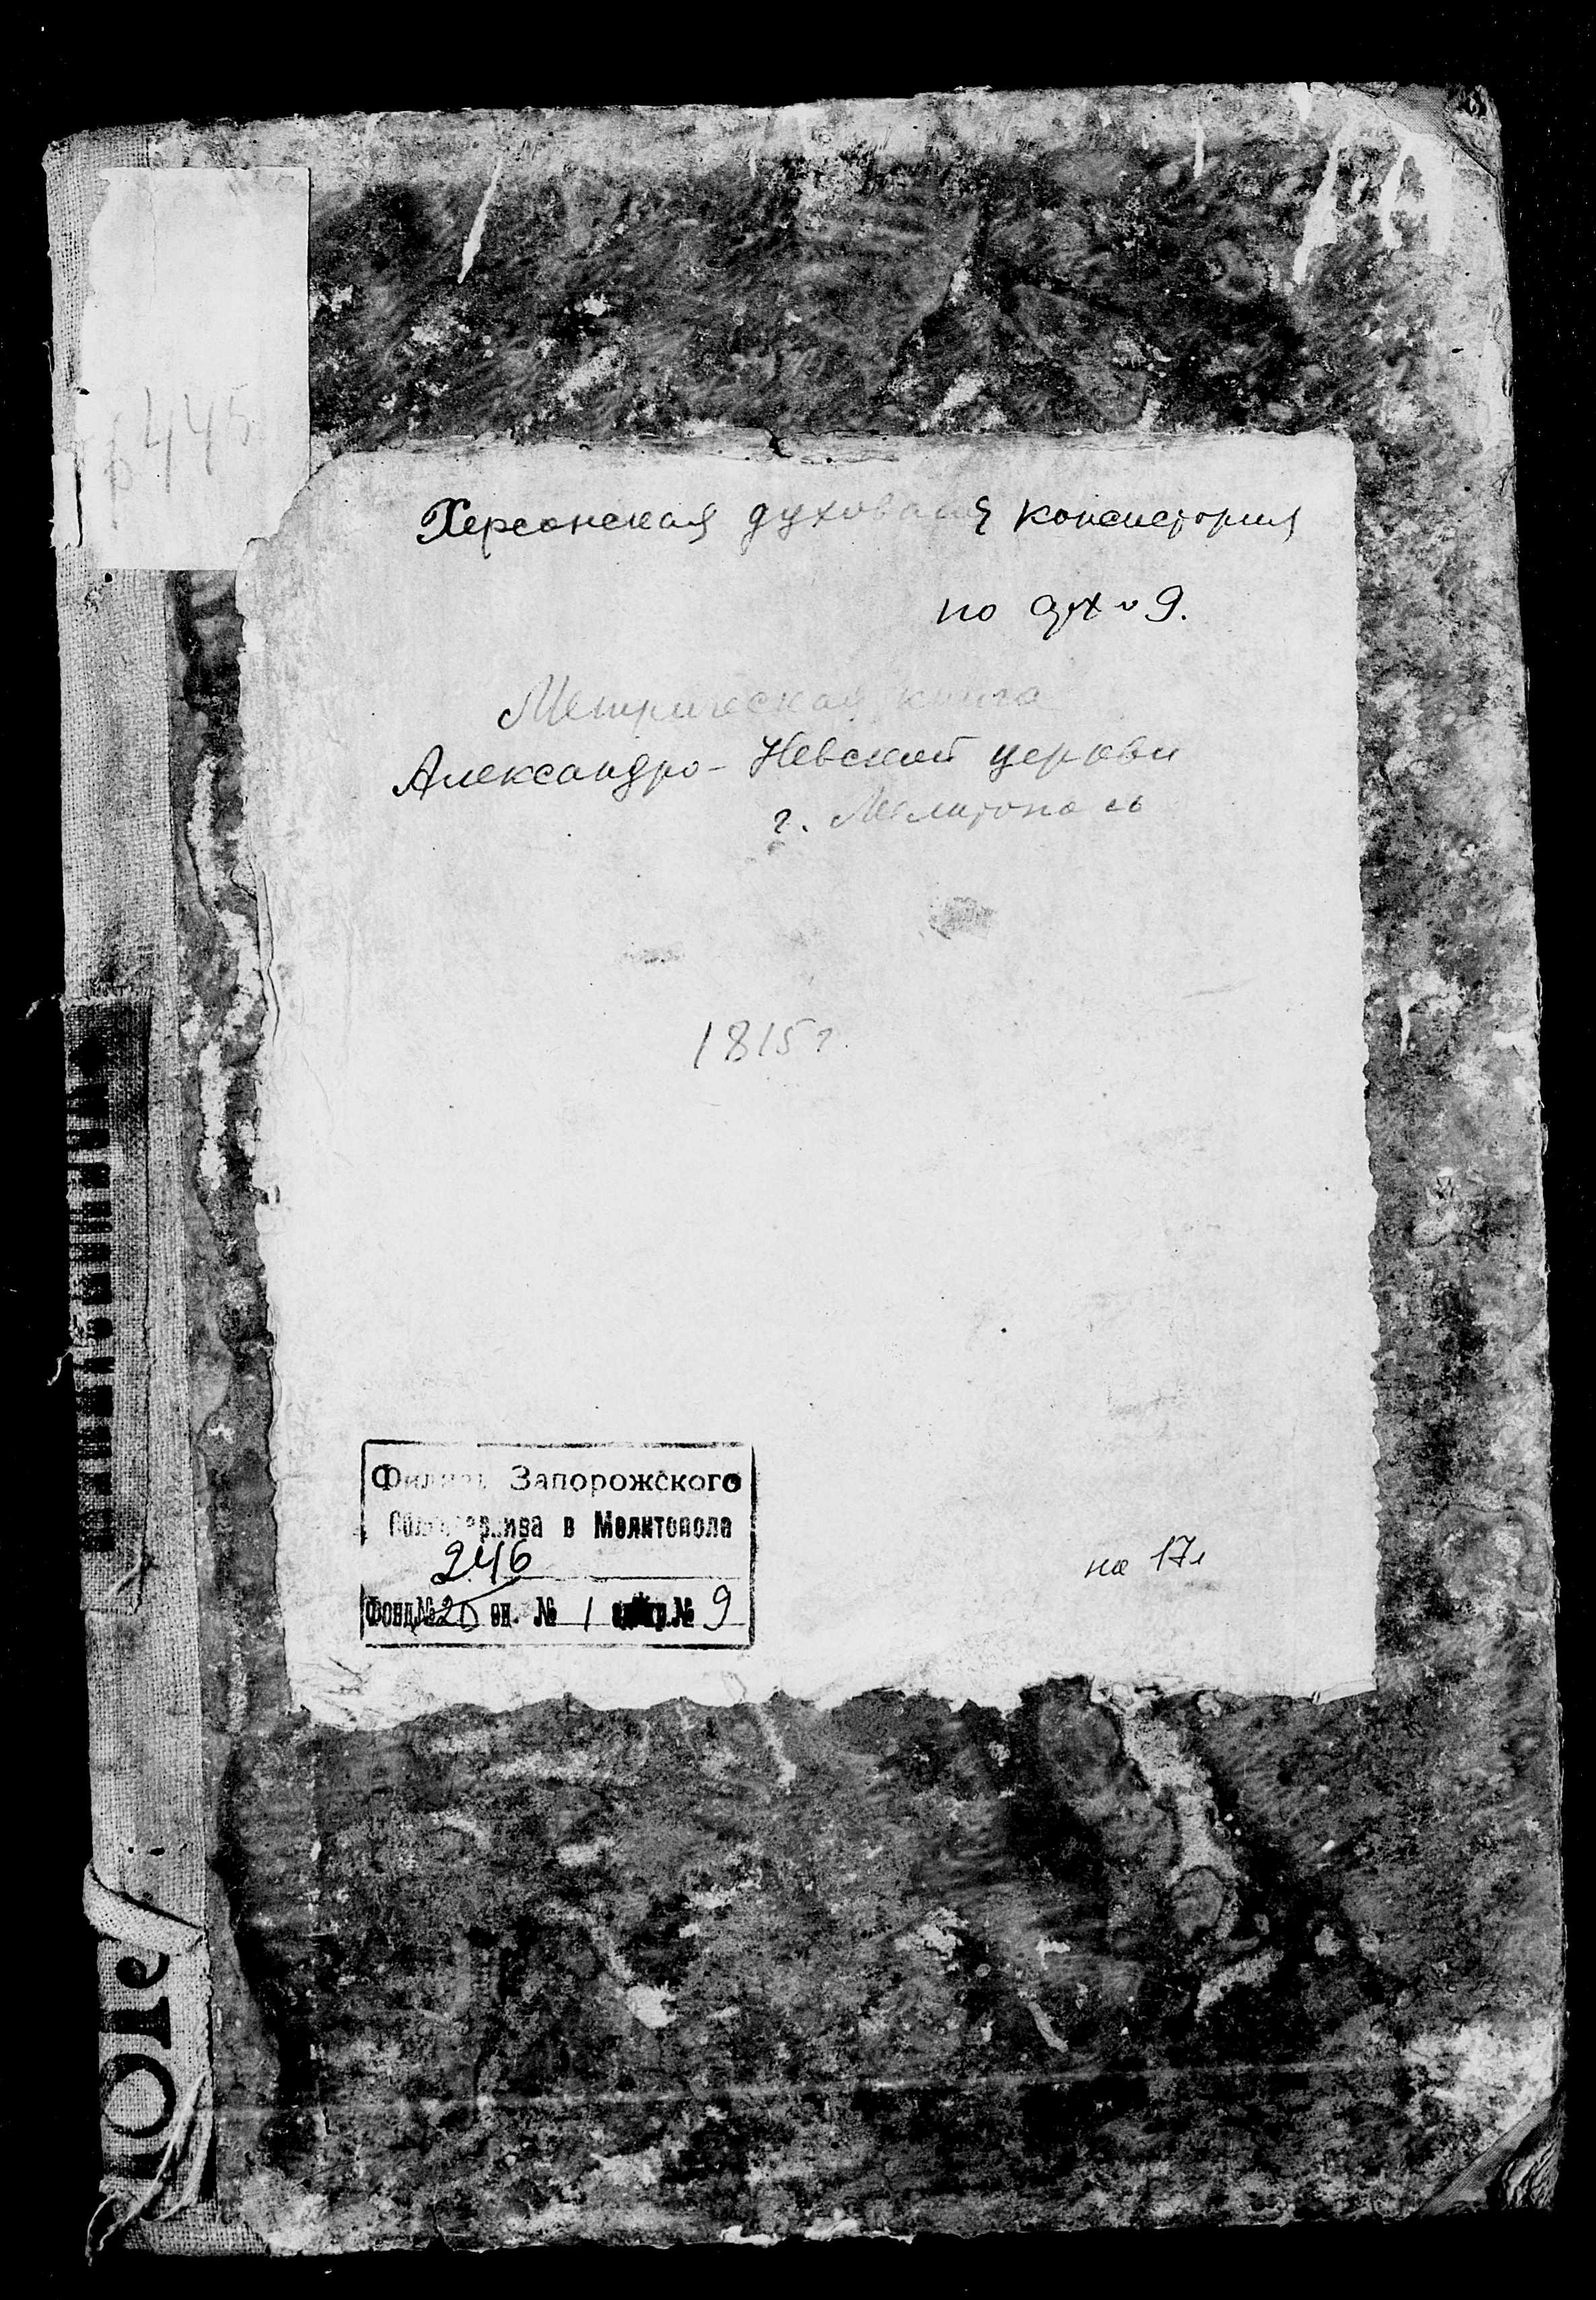 445
Херсонская духовная консистория
по арх № 9.
Метрическая книга
Александро-Невской церкви
г. Мелитополь
1815 г.
Филиал Запорожского
в Мелитополе
246
Фонд № 20 оп. № 1 № 9
на 17 л